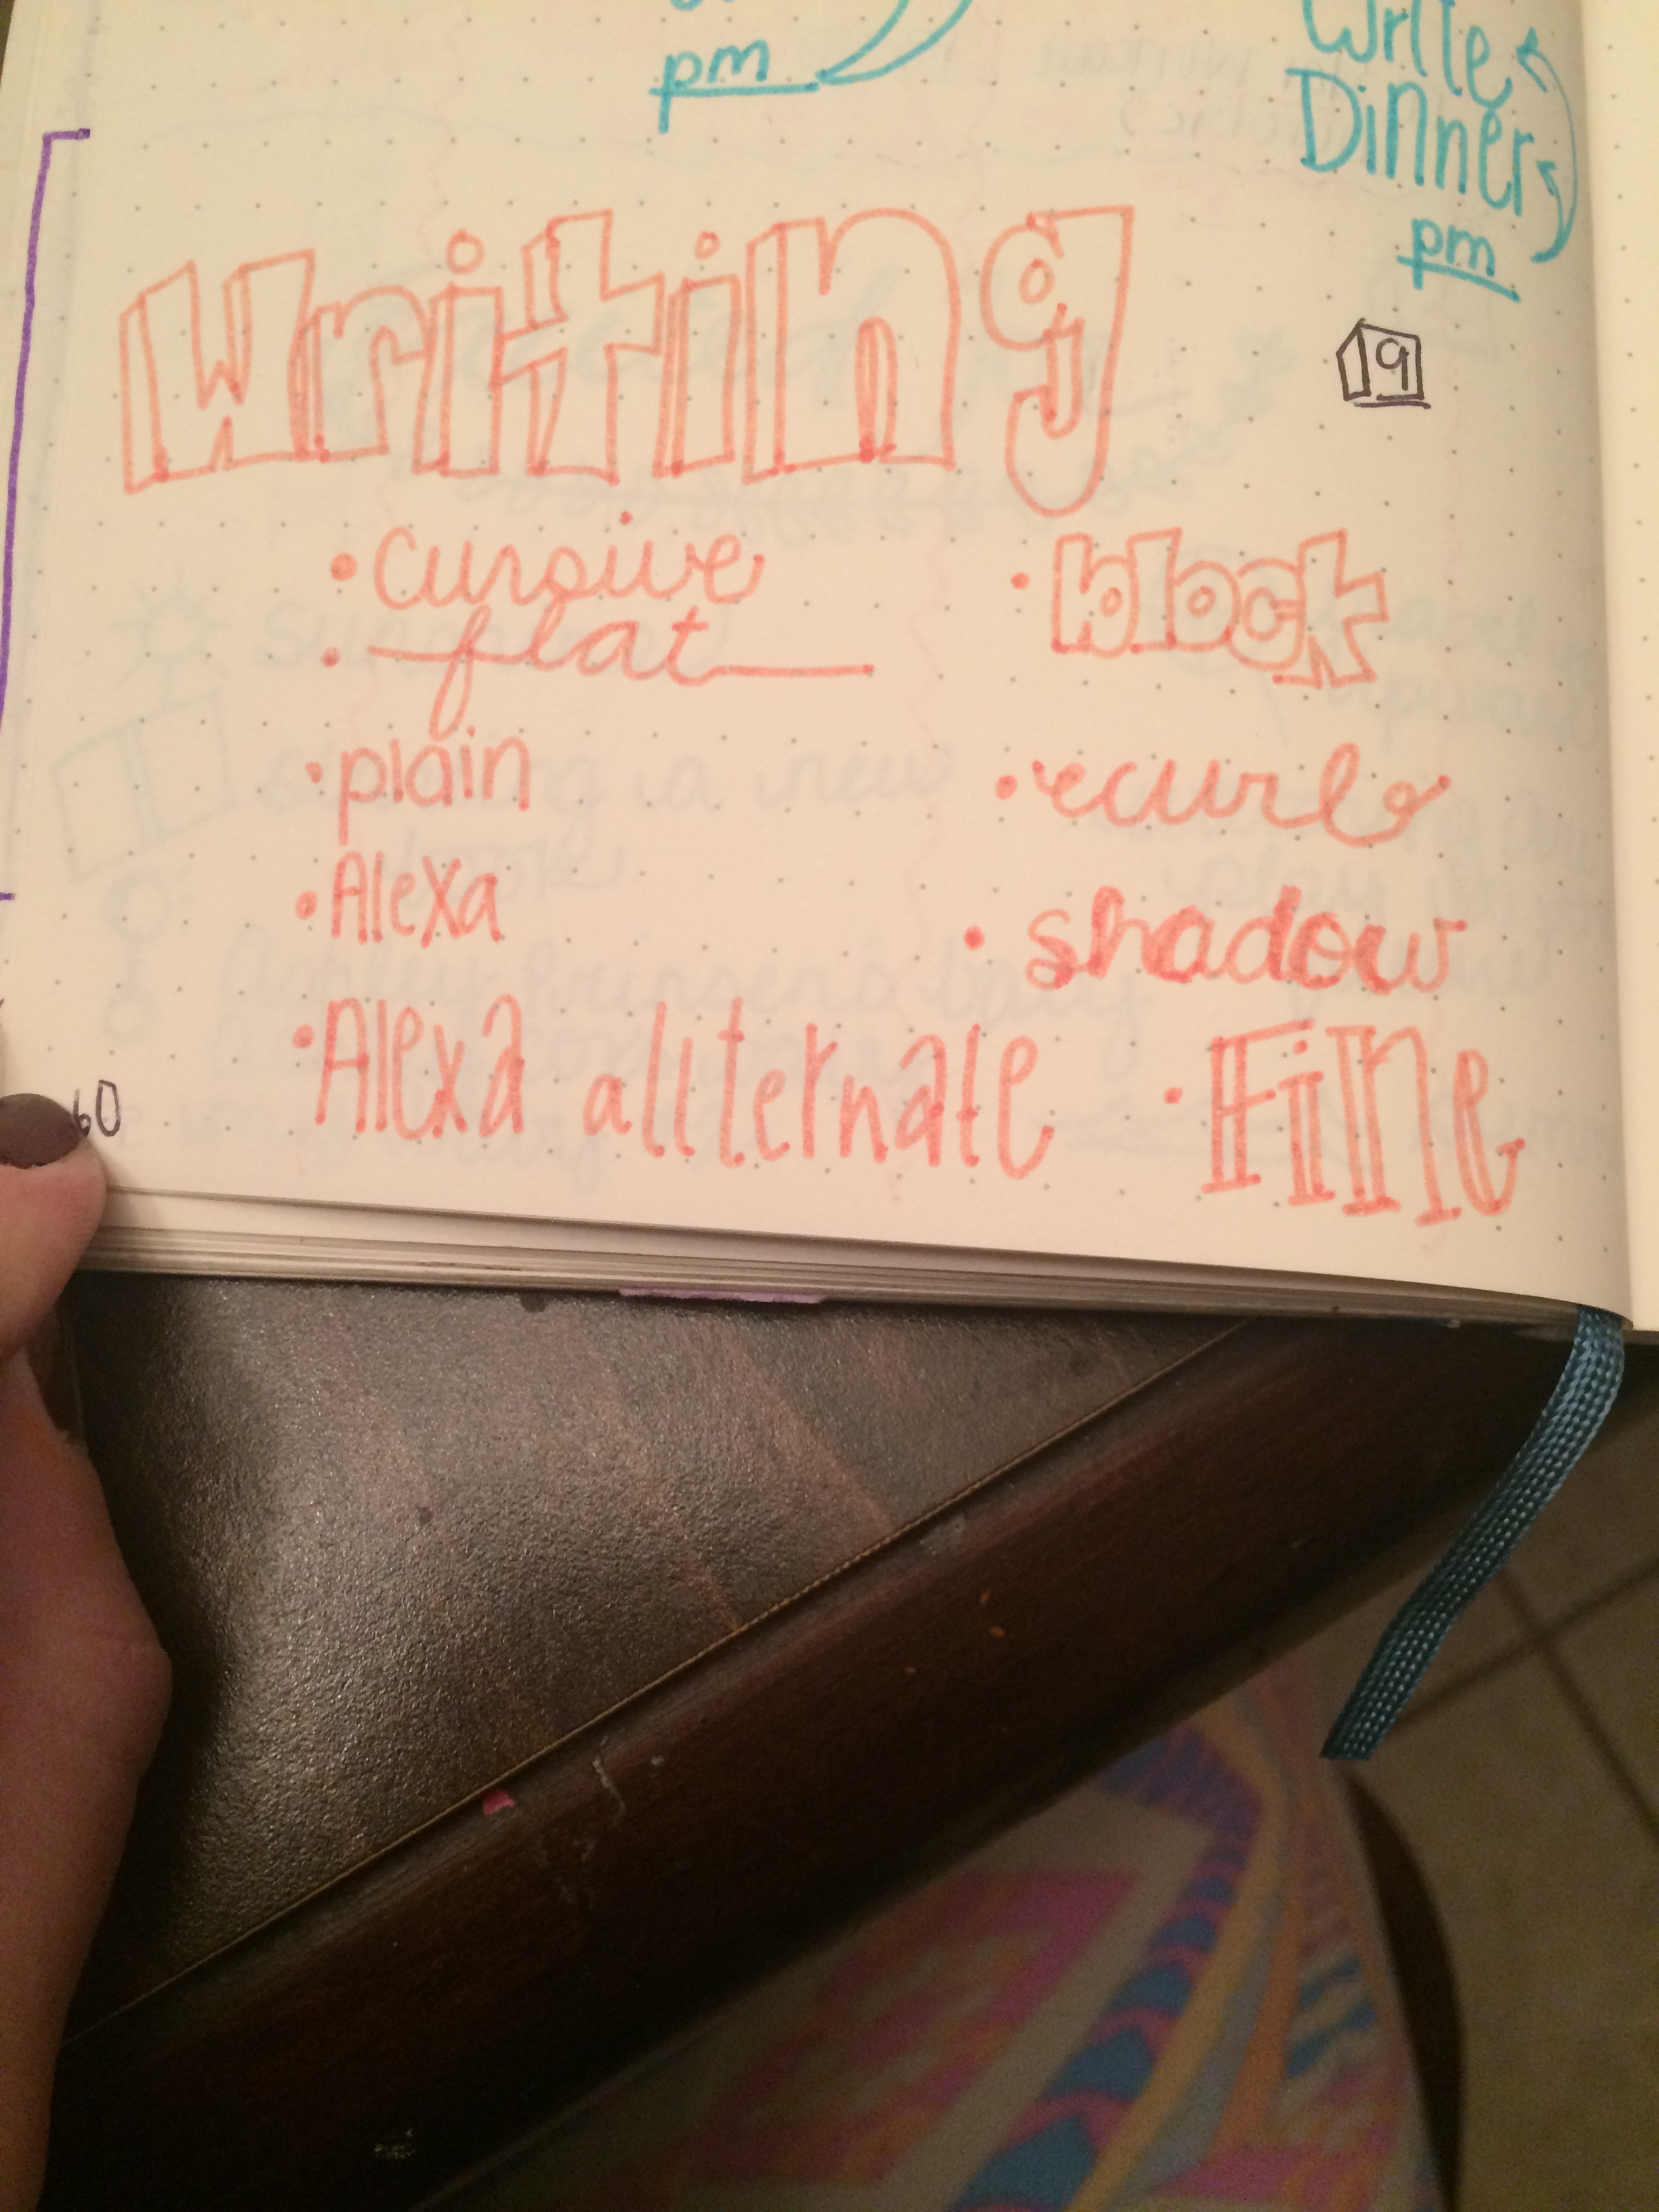 pm
Write
Dinner
pm
Writing
19
• cursive
• block
• flat
• plain
• curl
• Alexa
• shadow
• Alexa allternate
• Fine
60